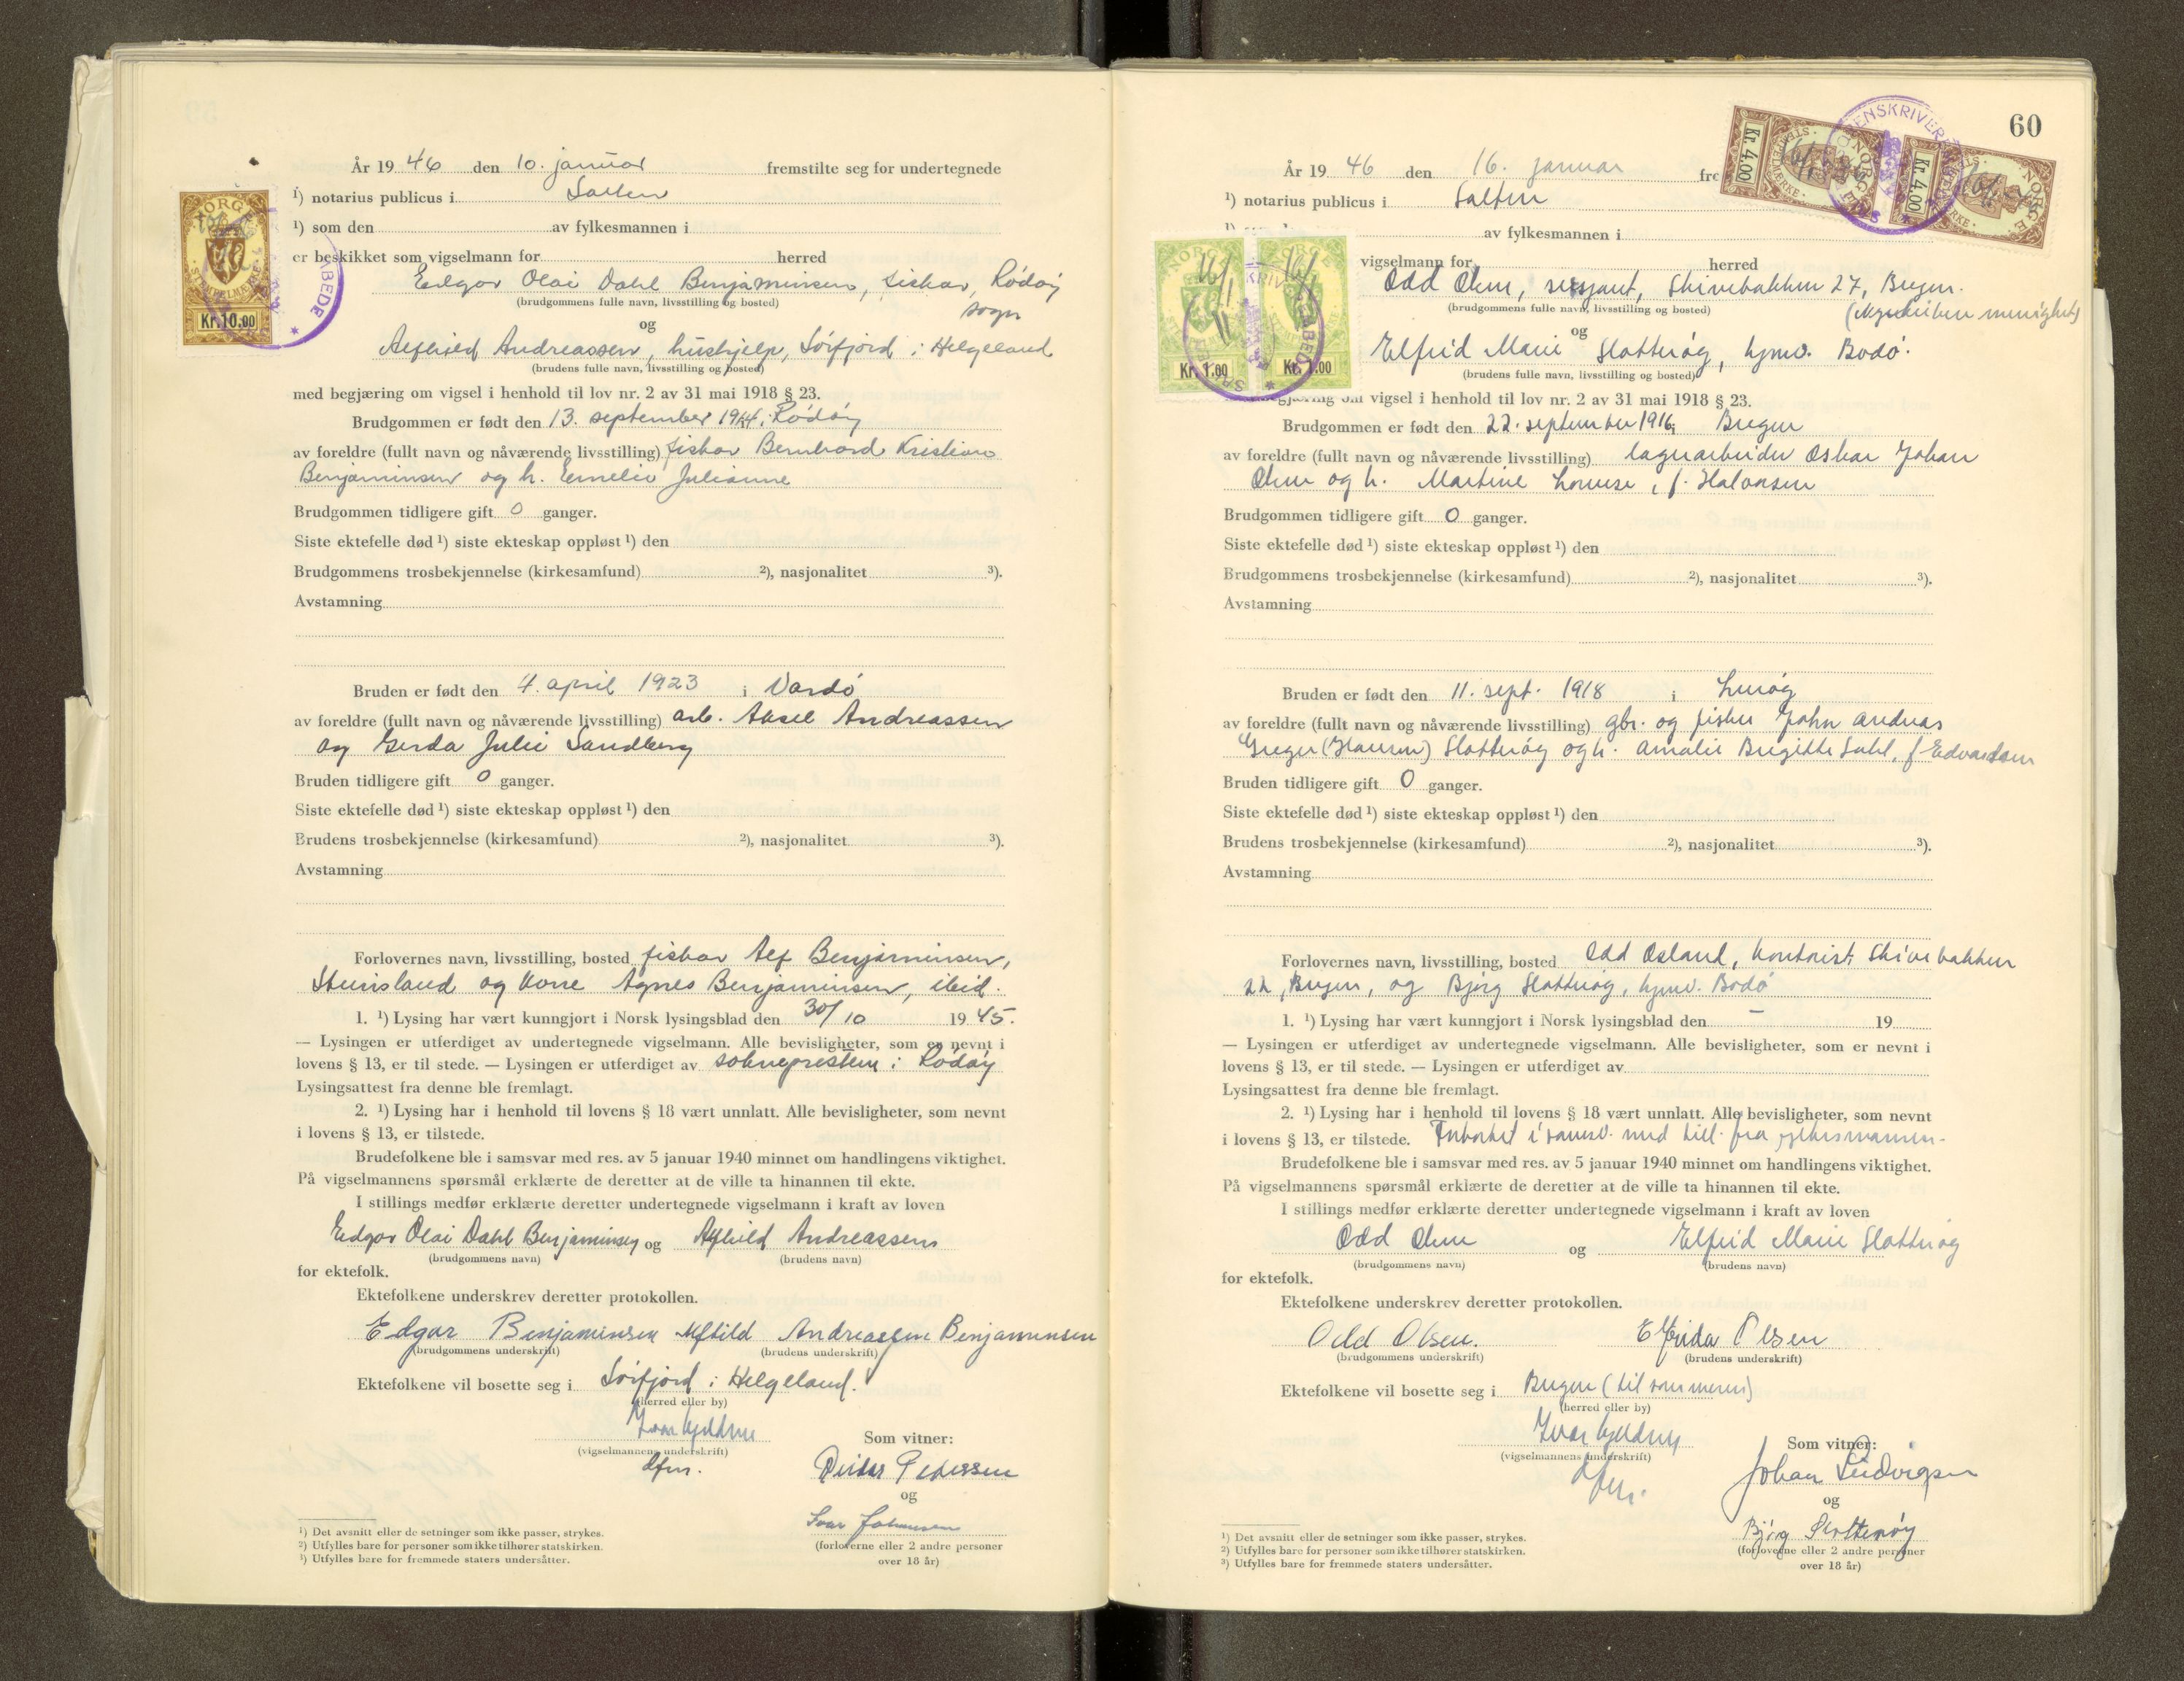 År 19 46 den 10. januar fremstilte seg for undertegnede
¹) notarius publicus i Salten
¹) som den av fylkesmannen i
er beskikket som vigselmann for herred
Edgar Olai Dahl Benjaminsen, fisker, Rödöy
(brudgommens fulle navn, livsstilling og bosted)
sogn
og
Alfhild Andreassen, hushjelp, Sörfjord i Helgeland
(brudens fulle navn, livsstilling og bosted)
med begjæring om vigsel i henhold til lov nr. 2 av 31 mai 1918 § 23.
Brudgommen er født den 13. september i Rödöy
av foreldre (fullt navn og nåværende livsstilling) fisker Bernhard Kristian
Benjaminsen og h. Emelie Julianne
Brudgommen tidligere gift 0 ganger.
Siste ektefelle død ¹) siste ekteskap oppløst ¹) den
Brudgommens trosbekjennelse (kirkesamfund) ²), nasjonalitet ³).
Avstamning
Bruden er født den 4. april 1923 i Vardö
av foreldre (fullt navn og nåværende livsstilling) arb. Aksel Andreassen
og Gerda Julie Sandberg
Bruden tidligere gift 0 ganger.
Siste ektefelle død ¹) siste ekteskap oppløst ¹) den
Brudens trosbekjennelse (kirkesamfund) ²), nasjonalitet ³).
Avstamning
Forlovernes navn, livsstilling, bosted fisker Alf Benjaminsen,
og kone Agnes Benjaminsen, ibid.
1. ¹) Lysing har vært kunngjort i Norsk lysingsblad den 30/10 19 45.
— Lysingen er utferdiget av undertegnede vigselmann. Alle bevisligheter, som er nevnt i
lovens § 13, er til stede. — Lysingen er utferdiget av sokneprestem i Rödöy
Lysingsattest fra denne ble fremlagt.
2. ¹) Lysing har i henhold til lovens § 18 vært unnlatt. Alle bevisligheter, som nevnt
i lovens § 13, er tilstede.
Brudefolkene ble i samsvar med res. av 5 januar 1940 minnet om handlingens viktighet.
På vigselmannens spørsmål erklærte de deretter at de ville ta hinannen til ekte.
I stillings medfør erklærte deretter undertegnede vigselmann i kraft av loven
Edgar Olai Dahl Benjaminsen og Alfhild Andreassen
(brudgommens navn) (brudens navn)
for ektefolk.
Ektefolkene underskrev deretter protokollen.
Edgar Benjaminsen Alfhild Andreassen Benjaminsen
(brudgommens underskrift) (brudens underskrift)
Ektefolkene vil bosette seg i Sörfjord i Helgeland.
(herred eller by)
Ivar
(vigselmannens underskrift)
dfm.
Som vitner:
Reidar Pedersen
og
Ivar Johansen
(forloverne eller 2 andre personer
over 18 år)
¹) Det avsnitt eller de setninger som ikke passer, strykes.
²) Utfylles bare for personer som ikke tilhører statskirken.
³) Utfylles bare for fremmede staters undersåtter.
NORGE
STEMPELMERKE
Kr. 10.00
60
År 19 46 den 16. januar fre
¹) notarius publicus i Salten
av fylkesmannen i
vigselmann for herred
Odd Olsen, sersjant, Skivebakken 27, Bergen.
(brudgommens fulle navn, livsstilling og bosted)
(Nykirken menighet)
og
Elfrid Marie Slotterøy, hjmv. Bodö.
(brudens fulle navn, livsstilling og bosted)
begjæring om vigsel i henhold til lov nr. 2 av 31 mai 1918 § 23.
Brudgommen er født den 22. september 1916 i Bergen
av foreldre (fullt navn og nåværende livsstilling) lagerarbeider Oskar Johan
Olsen og h. Martine Lovise, f. Halvorsen
Brudgommen tidligere gift 0 ganger.
Siste ektefelle død ¹) siste ekteskap oppløst ¹) den
Brudgommens trosbekjennelse (kirkesamfund) ²), nasjonalitet ³).
Avstamning
Bruden er født den 11. sept. 1918 i Lurøy
av foreldre (fullt navn og nåværende livsstilling) gbr. og fisker John Andreas
Greger (Hansen) Slotterøy og h. Amalie Birgitte Dahl, f. Edvardsen
Bruden tidligere gift 0 ganger.
Siste ektefelle død ¹) siste ekteskap oppløst ¹) den
Brudens trosbekjennelse (kirkesamfund) ²), nasjonalitet ³).
Avstamning
Forlovernes navn, livsstilling, bosted Odd Osland, kontorist, Skivebakken
22, Bergen, og Bjørg Slotterøy, hjmv. Bodö
1. ¹) Lysing har vært kunngjort i Norsk lysingsblad den — 19
— Lysingen er utferdiget av undertegnede vigselmann. Alle bevisligheter, som er nevnt i
lovens § 13, er til stede. — Lysingen er utferdiget av
Lysingsattest fra denne ble fremlagt.
2. ¹) Lysing har i henhold til lovens § 18 vært unnlatt. Alle bevisligheter, som nevnt
i lovens § 13, er tilstede. Forkortet i samsv. med till. fra fylkesmannen.
Brudefolkene ble i samsvar med res. av 5 januar 1940 minnet om handlingens viktighet.
På vigselmannens spørsmål erklærte de deretter at de ville ta hinannen til ekte.
I stillings medfør erklærte deretter undertegnede vigselmann i kraft av loven
Odd Olsen og Elfrid Marie Slotterøy
(brudgommens navn) (brudens navn)
for ektefolk.
Ektefolkene underskrev deretter protokollen.
Odd Olsen. Elfrida Olsen
(brudgommens underskrift) (brudens underskrift)
Ektefolkene vil bosette seg i Bergen (til sommeren)
(herred eller by)
Ivar
(vigselmannens underskrift)
dfm.
Som vitner:
Johan Ludvigsen
og
Bjørg Slotterøy
(forloverne eller 2 andre personer
over 18 år)
¹) Det avsnitt eller de setninger som ikke passer, strykes.
²) Utfylles bare for personer som ikke tilhører statskirken.
³) Utfylles bare for fremmede staters undersåtter.
NORGE
Kr. 4.00
NORGE
Kr. 4.00
NORGE
Kr. 1.00
NORGE
Kr. 1.00